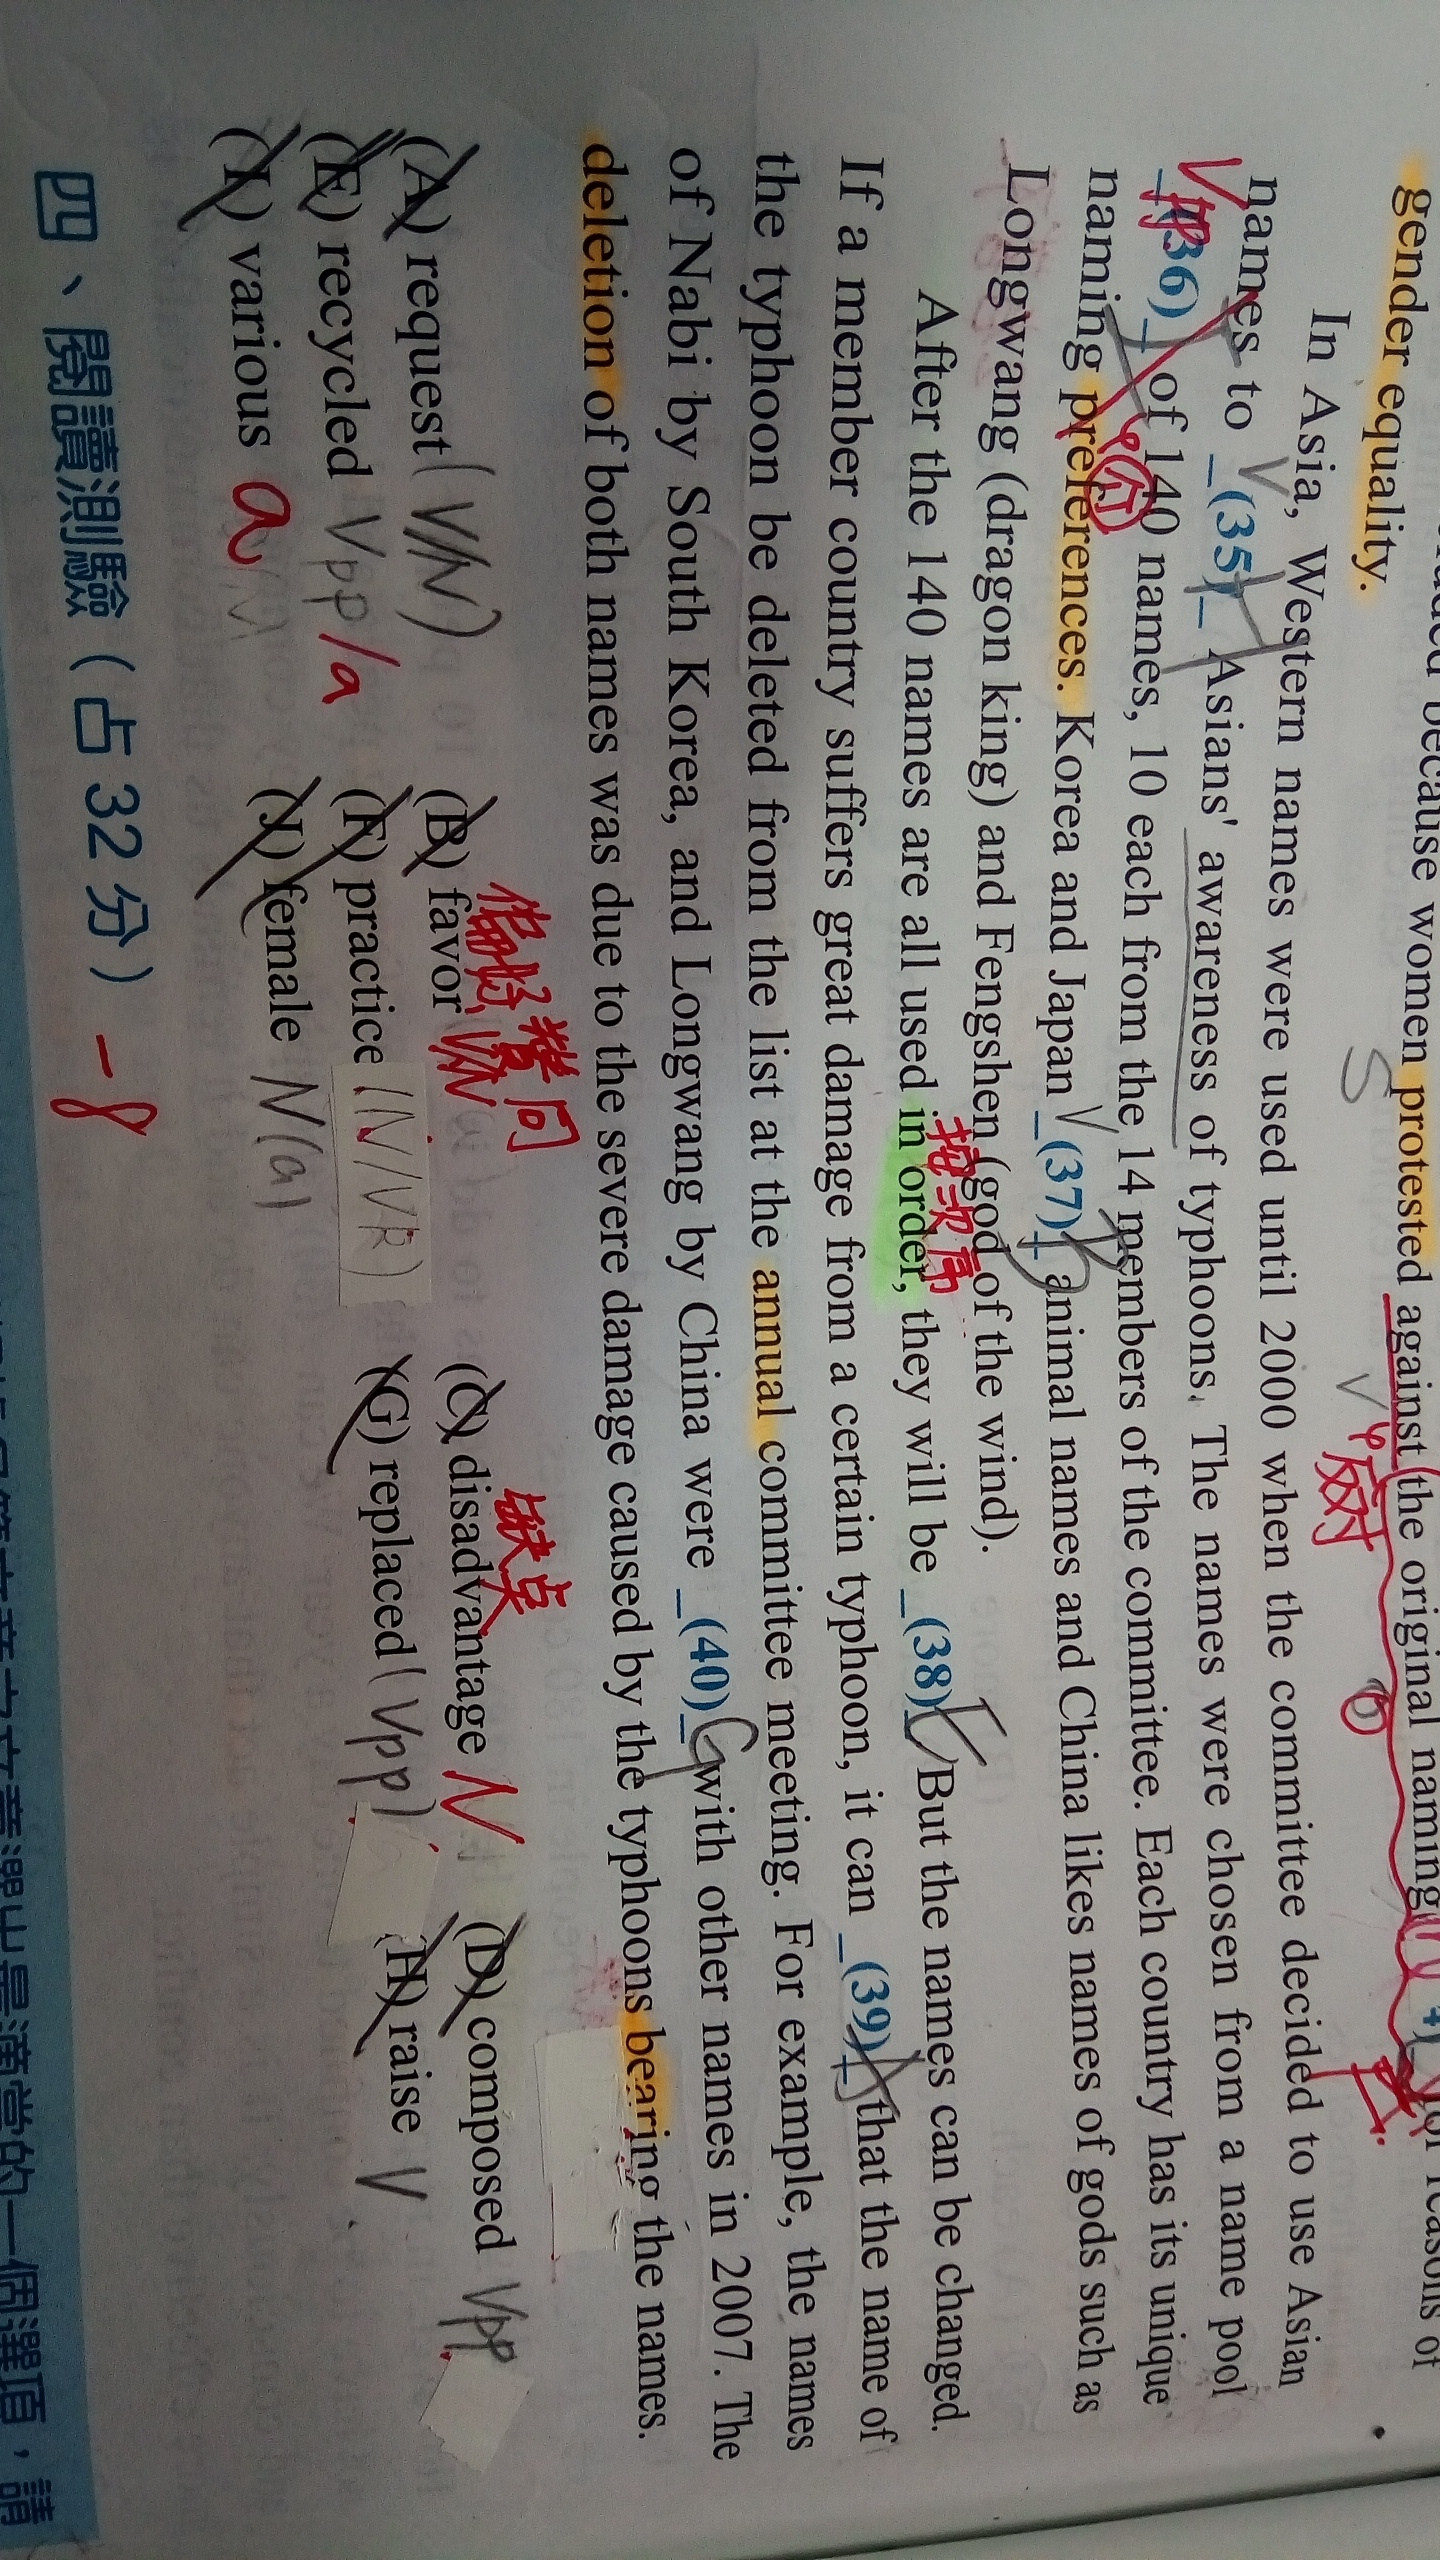 because women protested against the original naming
gender equality.
In Asia, Western names were used until 2000 when the committee decided to use Asian
names to (35) Asians' awareness of typhoons. The names were chosen from a name pool
(36) of 140 names, 10 each from the 14 members of the committee. Each country has its unique
naming preferences. Korea and Japan (37) animal names and China likes names of gods such as
Longwang (dragon king) and Fengshen (god of the wind).
After the 140 names are all used in order, they will be (38). But the names can be changed.
If a member country suffers great damage from a certain typhoon, it can (39) that the name of
the typhoon be deleted from the list at the annual committee meeting. For example, the names
of Nabi by South Korea, and Longwang by China were (40) with other names in 2007. The
deletion of both names was due to the severe damage caused by the typhoons bearing the names.
反對
介
按次序
偏好 贊同
缺点
(A) request (V/N) (B) favor V/N (C) disadvantage N (D) composed Vpp
(E) recycled Vpp/a (F) practice (N/V) (G) replaced (Vpp) (H) raise V
(I) various a (J) female N(a)
四、閱讀測驗（占 32 分） -8